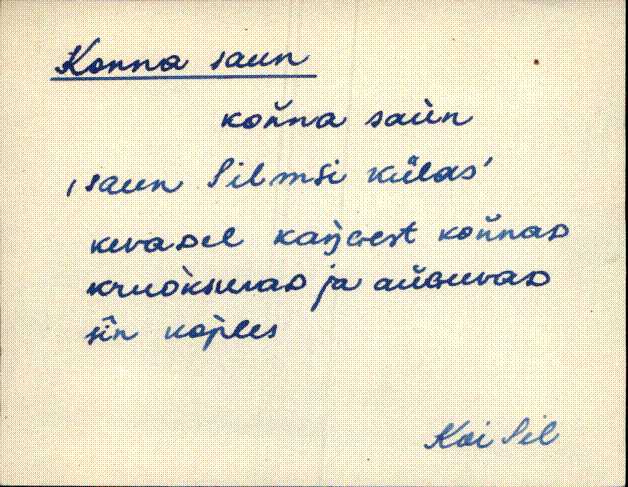 Konna saun
koňna saùn
'saun Silmsi külas'
kevaDel kaŋGest koňnaD
kruòksuvaD ja aùGuvaD
sîn kop̀les
Koi Sil